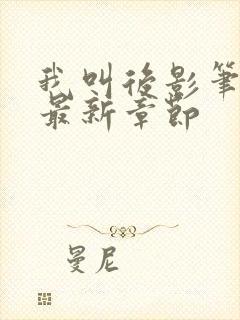 我叫後影筆
最新章節
曼尼